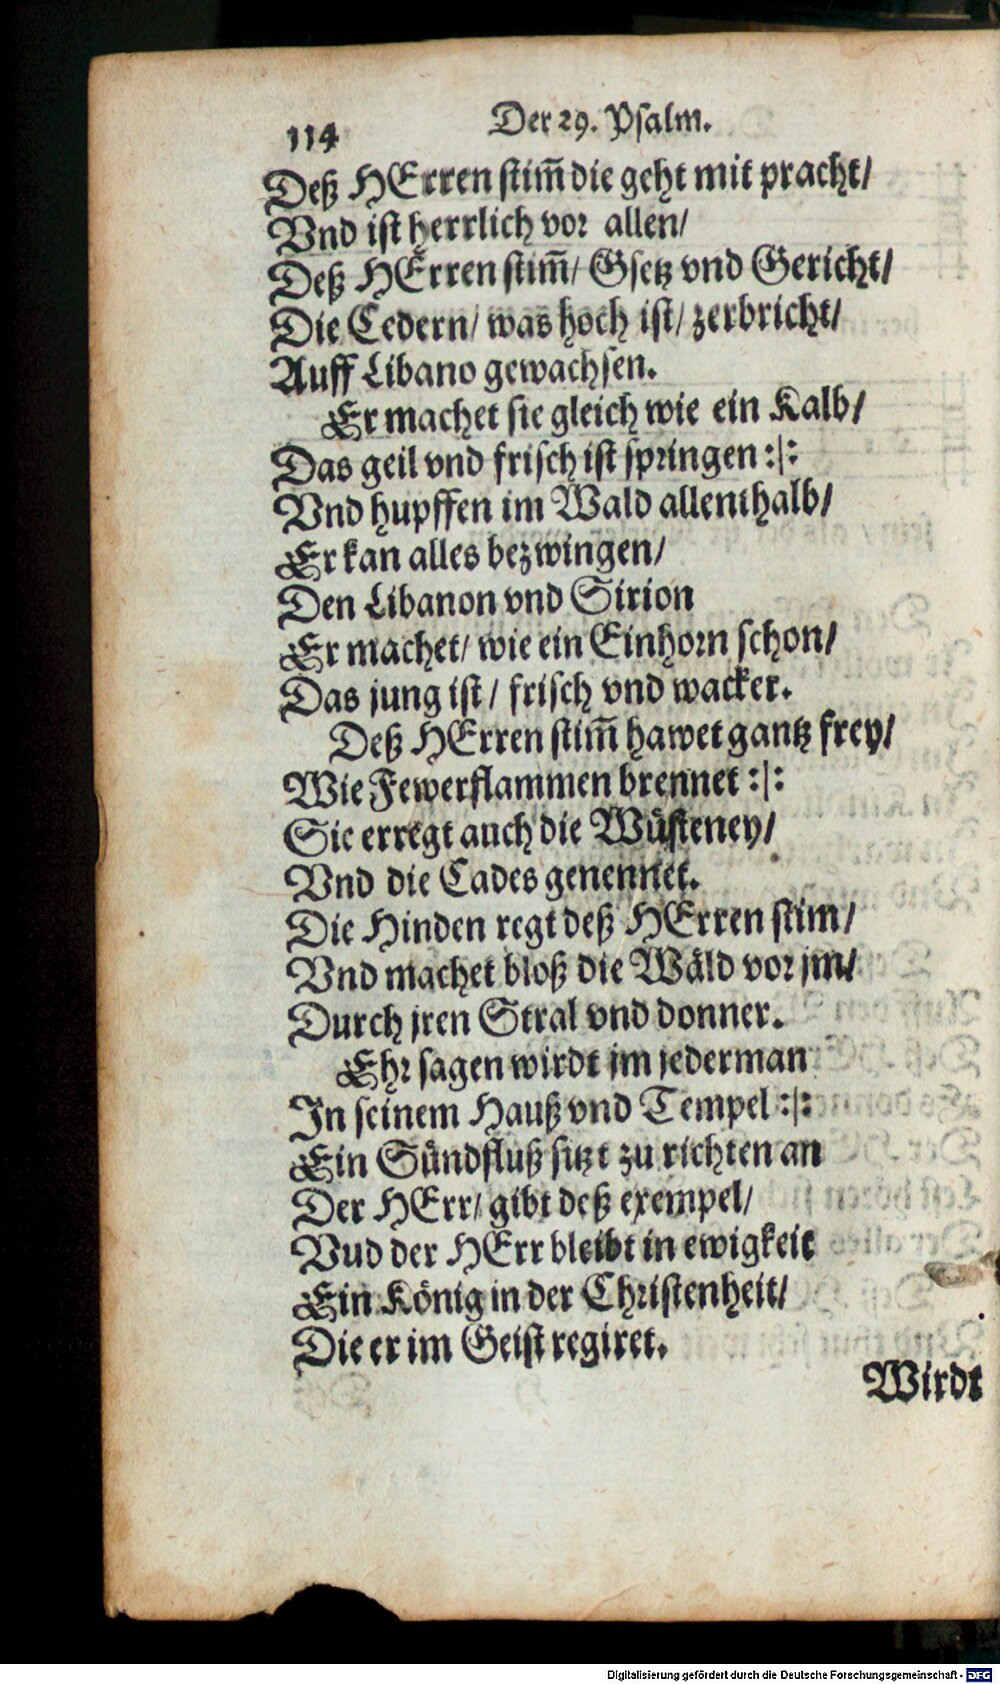 114 Der 29. Psalm.
Deß HErren stim̃ die geht mit pracht/
Vnd ist herrlich vor allen/
Deß HErren stim̃/ Gsetz vnd Gericht/
Die Cedern/ was hoch ist/ zerbricht/
Auff Libano gewachsen.
Er machet sie gleich wie ein Kalb/
Das geil vnd frisch ist springen :|:
Vnd hupffen im Wald allenthalb/
Er kan alles bezwingen/
Den Libanon vnd Sirion
Er machet/ wie ein Einhorn schon/
Das jung ist/ frisch vnd wacker.
Deß HErren stim̃ hawet gantz frey/
Wie Fewerflammen brennet :|:
Sie erregt auch die Wüsteney/
Vnd die Cades genennet.
Die Hinden regt deß HErren stim/
Vnd machet bloß die Wäld vor jm/
Durch jren Stral vnd donner.
Ehr sagen wirdt jm jederman
In seinem Hauß vnd Tempel :|:
Ein Sündfluß sitzt zu richten an
Der HErr/ gibt deß exempel/
Vud der HErr bleibt in ewigkeit
Ein König in der Christenheit/
Die er im Geist regiret.
Wirdt
Digitalisierung gefördert durch die Deutsche Forschungsgemeinschaft - DFG